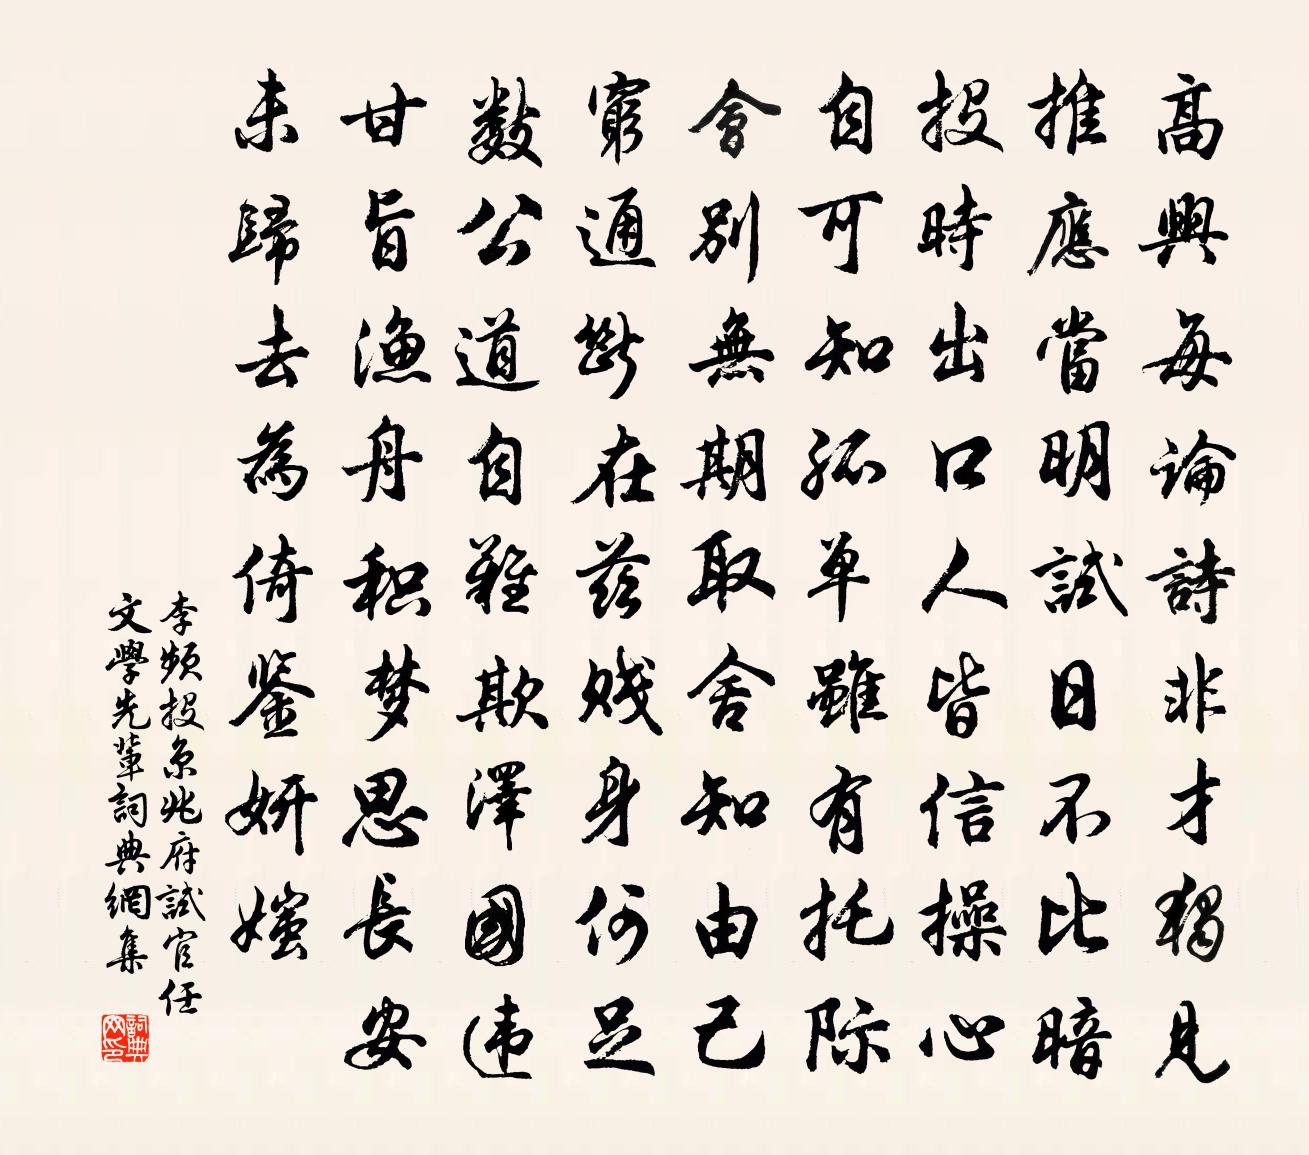 高興每論詩非才獨見
推應當明試日不比暗
投時出口人皆信操心
自可知孤單雖有托際
會別無期取舍知由己
窮通斷在茲賤身何足
數公道自難欺澤國违
甘旨漁舟积梦思長安
未歸去為倚鉴妍媸
李頻投京兆府試官任
文學先輩詞典網集
詞典
网印